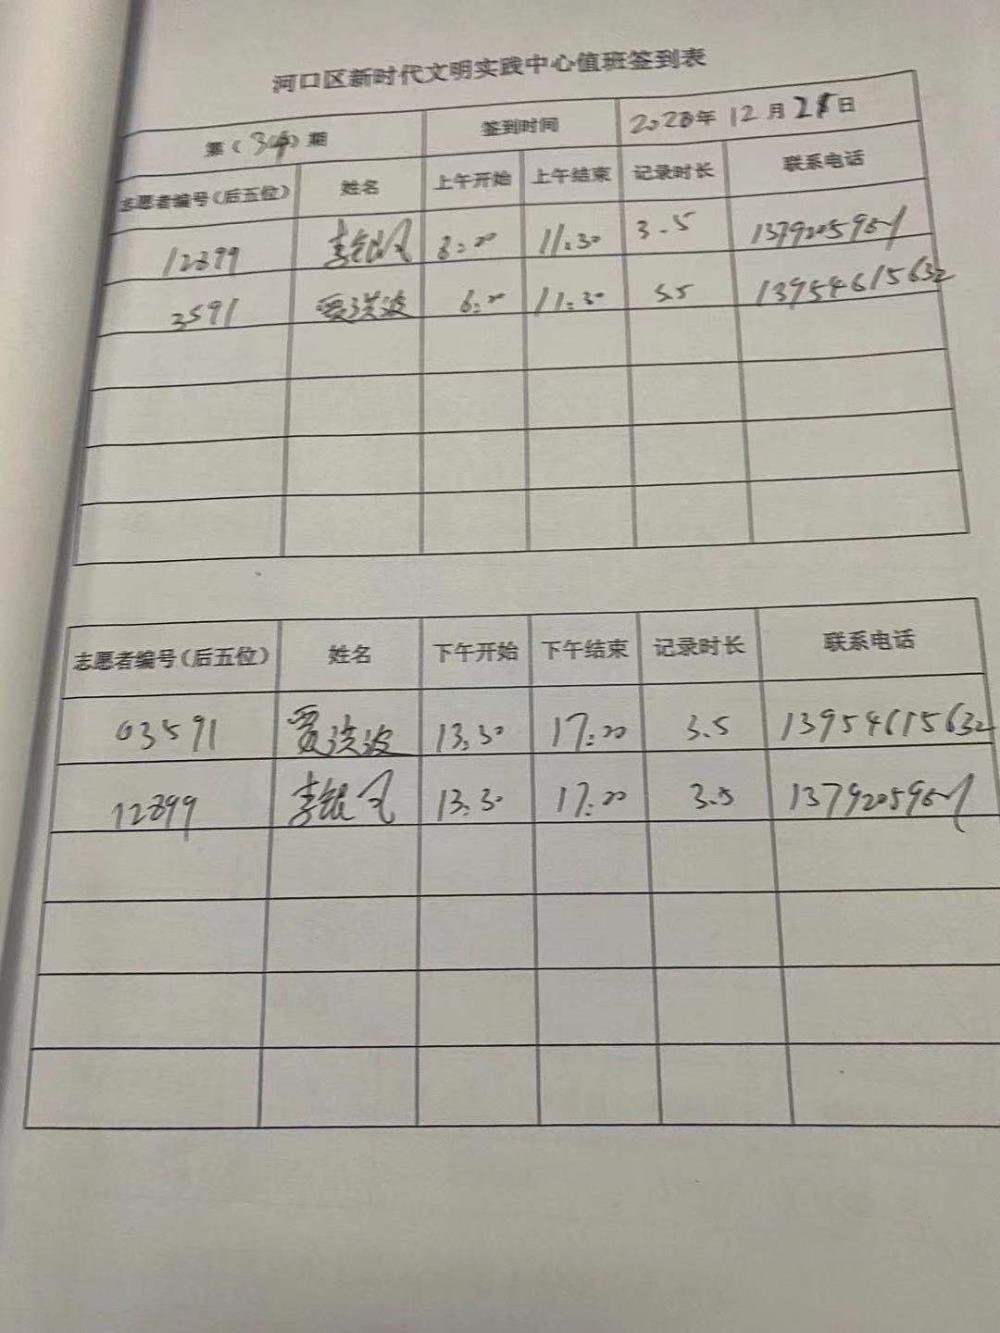 河口区新时代文明实践中心值班签到表
第（34）期 签到时间 2023年 12月 28日
志愿者编号（后五位） 姓名 上午开始 上午结束 记录时长 联系电话
12899 李银凤 8:00 11:30 3.5
3591 贾洪波 6:00 11:30 5.5 13954615632
志愿者编号（后五位） 姓名 下午开始 下午结束 记录时长 联系电话
03591 贾洪波 13:30 17:00 3.5 13954615632
12899 李银凤 13:30 17:00 3.5